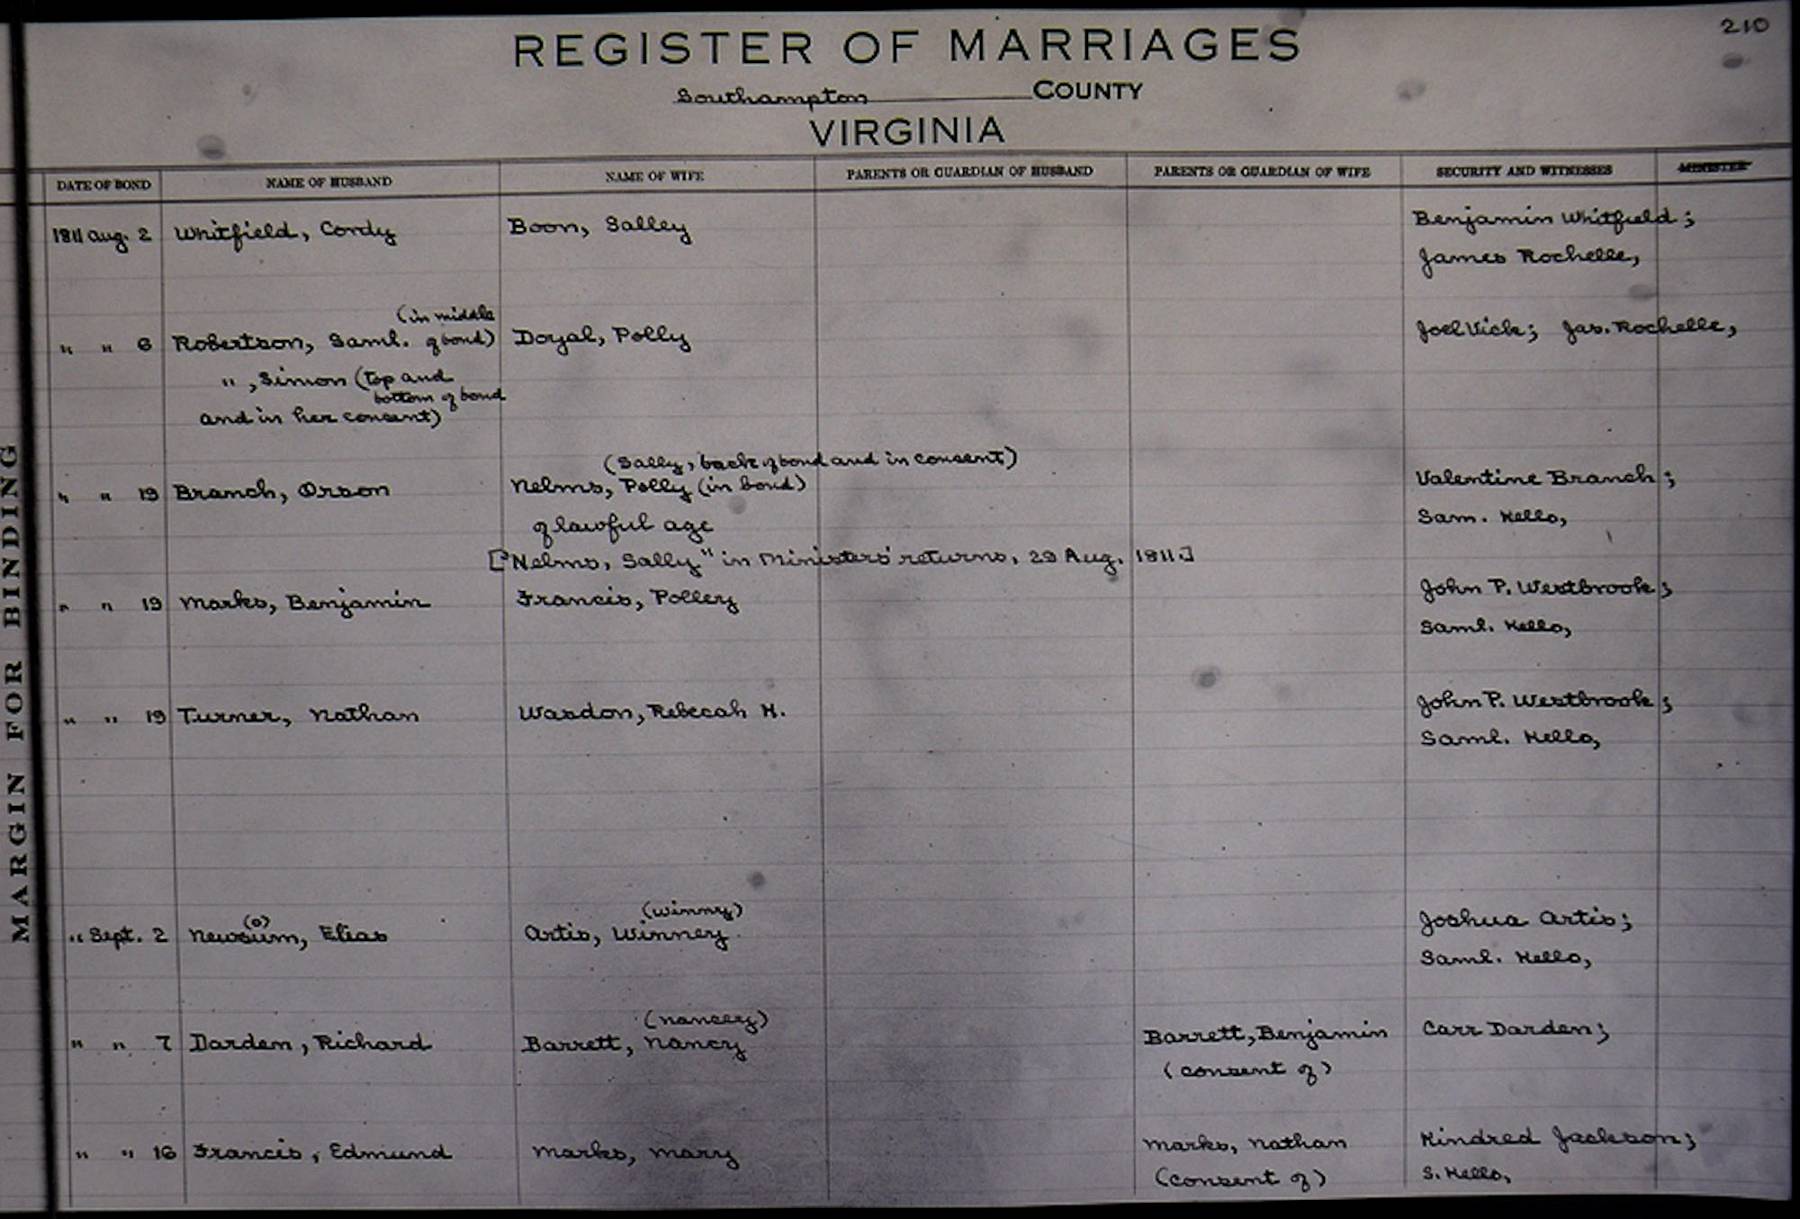 210
REGISTER OF MARRIAGES
Southampton COUNTY
VIRGINIA
DATE OF BOND NAME OF HUSBAND NAME OF WIFE PARENTS OR GUARDIAN OF HUSBAND PARENTS OR GUARDIAN OF WIFE SECURITY AND WITNESSES MINISTER
1811 Aug. 2 Whitfield, Cordy Boon, Salley Benjamin Whitfield;
James Rochelle,
(in middle
" " 6 Robertson, Saml. of bond) Doyal, Polly Joel Vick; Jas. Rochelle,
", Simon (top and
bottom of bond
and in her consent)
(Sally, back of bond and in consent)
" " 19 Branch, Orson Nelms, Polly (in bond) Valentine Branch;
of lawful age Sam. Kello,
["Nelms, Sally" in Ministers' returns, 29 Aug. 1811.]
" " 19 Marks, Benjamin Francis, Polley John P. Westbrook;
Saml. Kello,
" " 19 Turner, Nathan Wasdon, Rebecah H. John P. Westbrook;
Saml. Kello,
(o) (Winny)
" Sept. 2 Newsum, Elias Artis, Winney Joshua Artis;
Saml. Kello,
(Nancey)
" " 7 Darden, Richard Barrett, Nancy Barrett, Benjamin Carr Darden;
(consent of)
" " 16 Francis, Edmund Marks, Mary Marks, Nathan Kindred Jackson;
(consent of) S. Kello,
MARGIN FOR BINDING